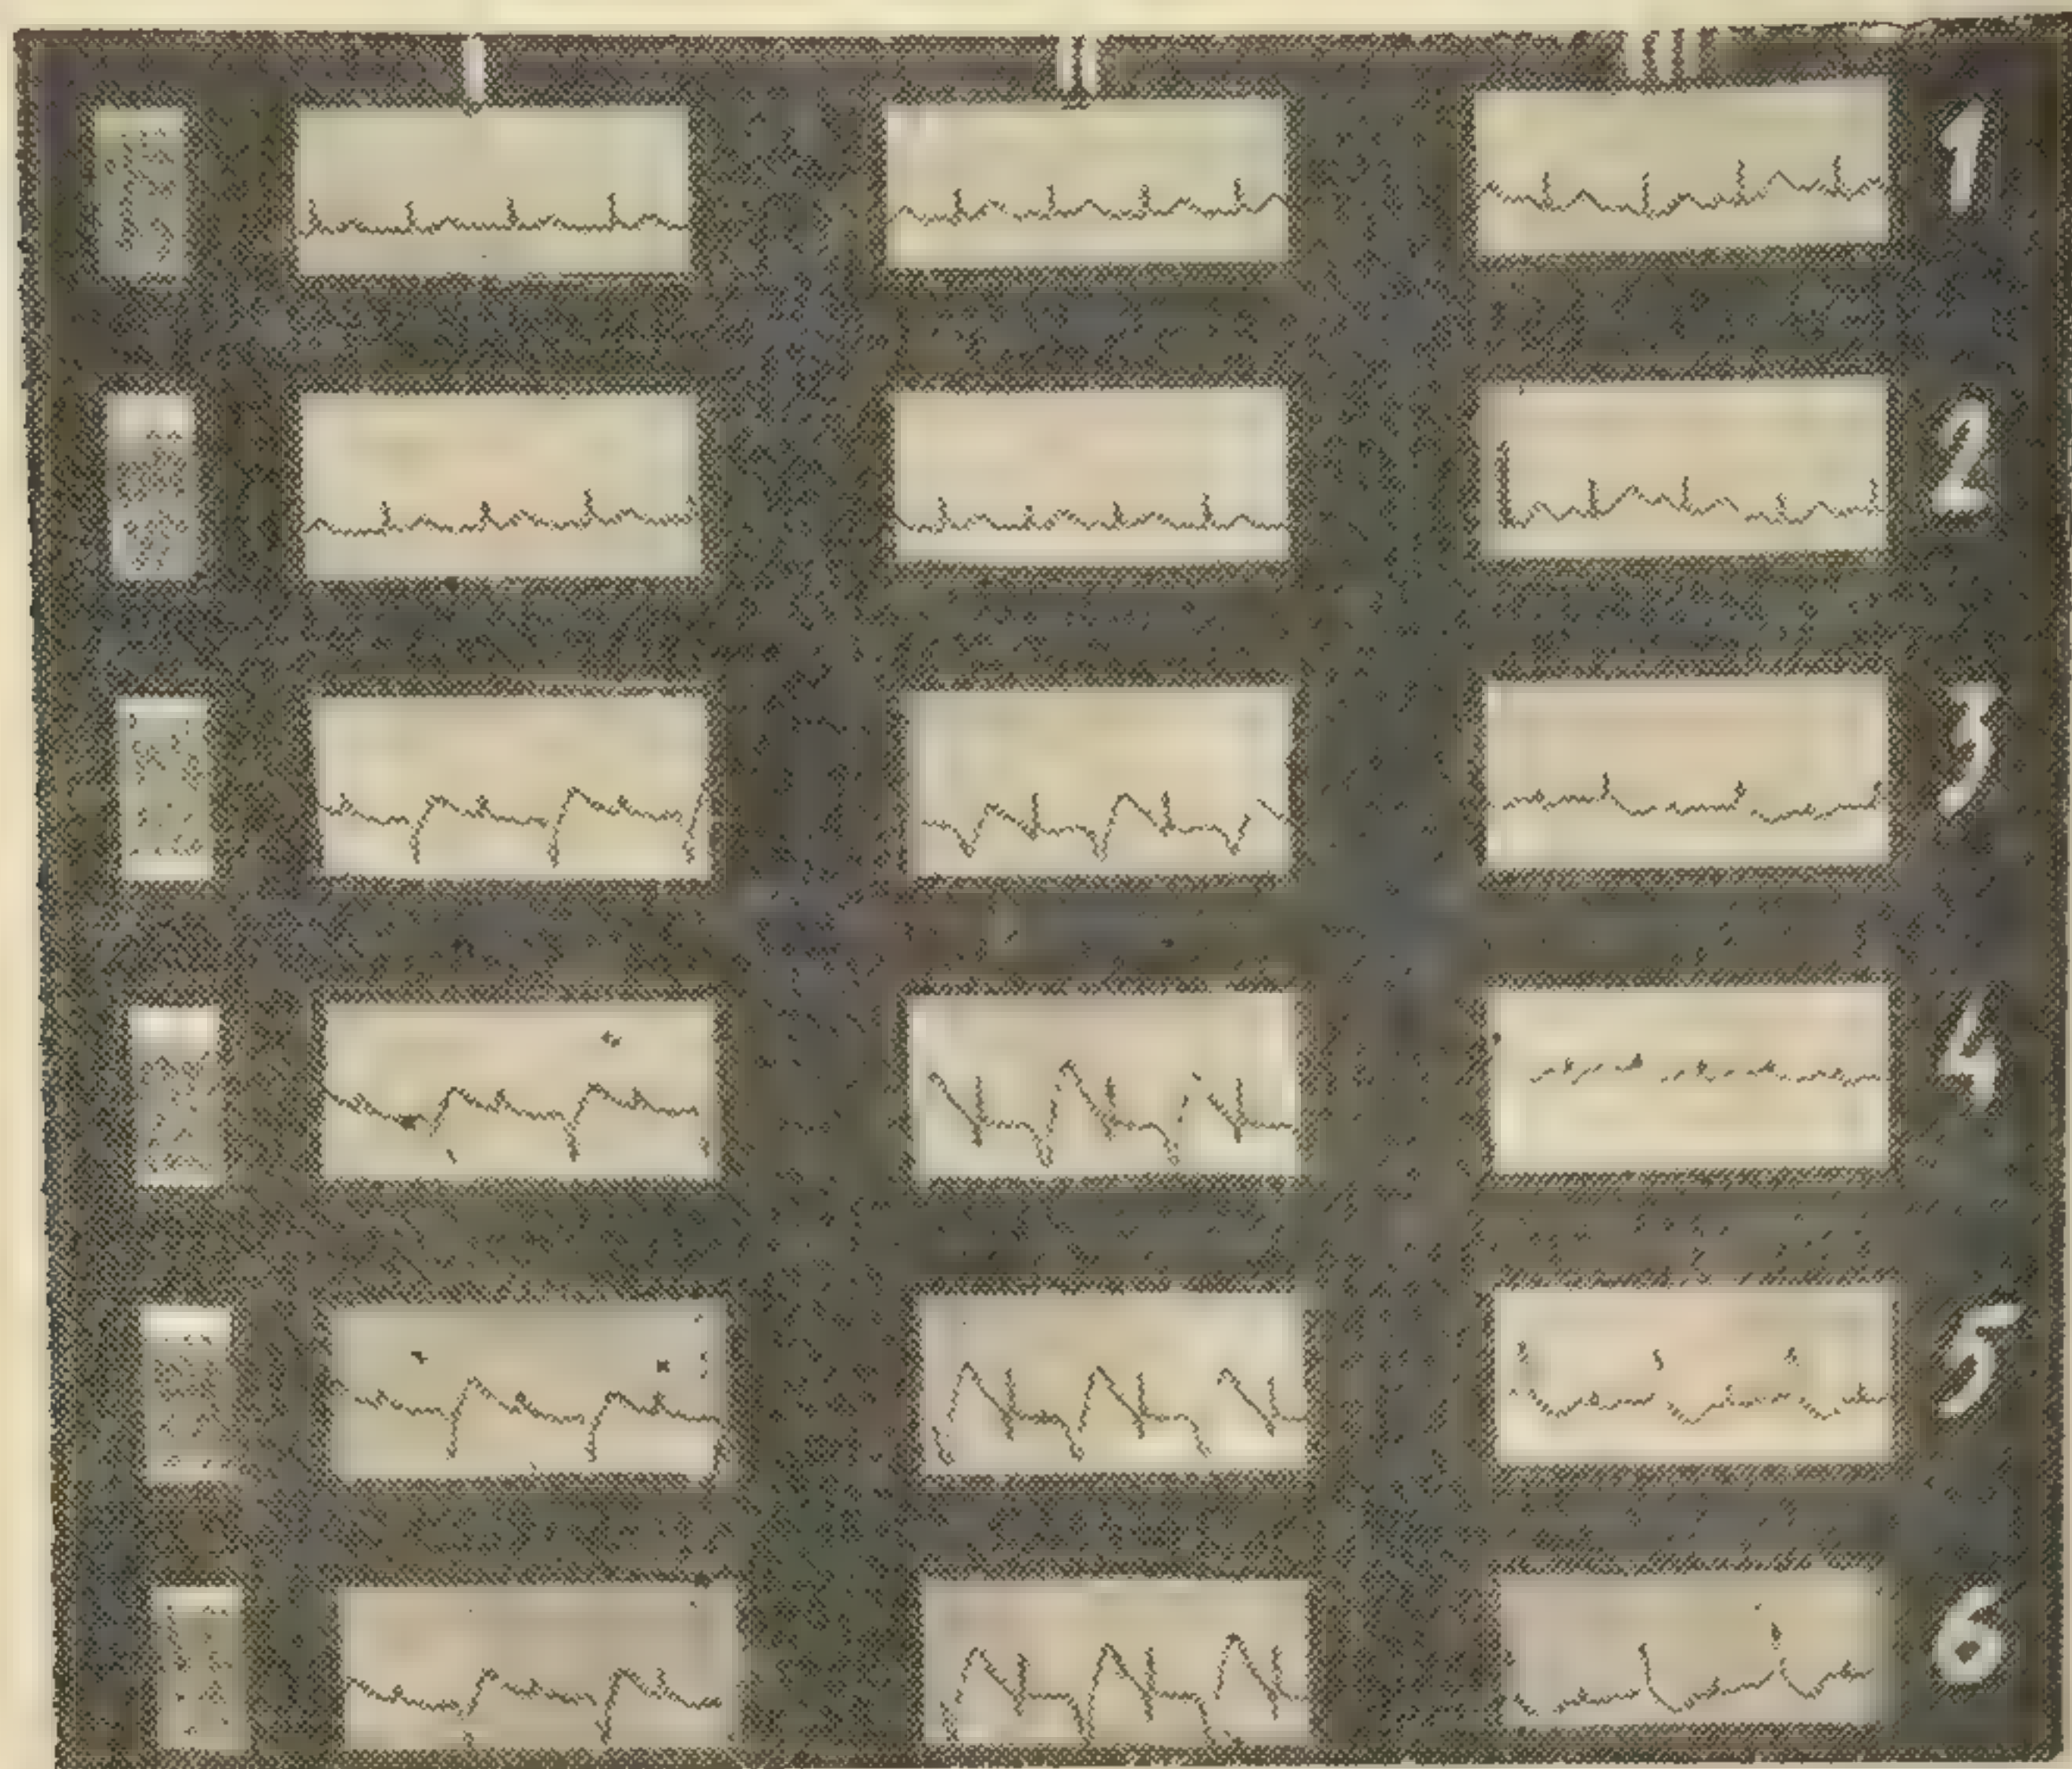 I II III
1
2
3
4
5
6